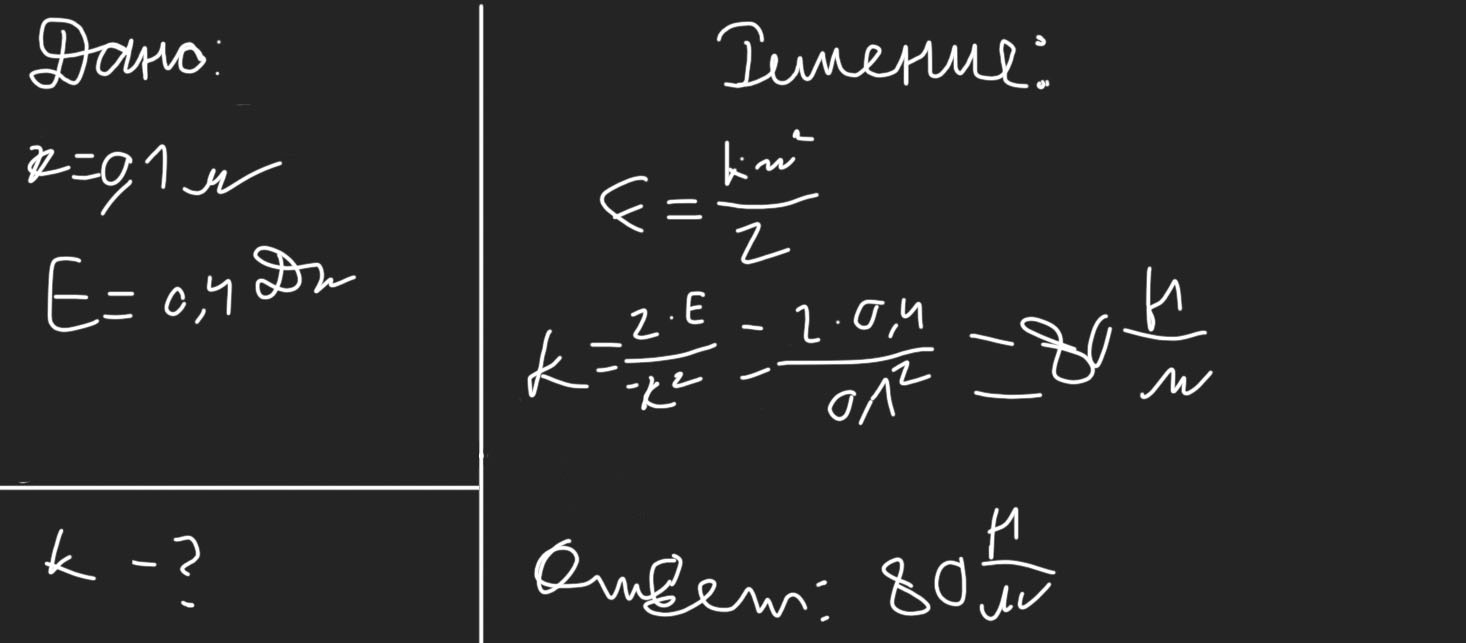 Дано:
x=0,1 м
E=0,4 Дж
k - ?
Решение:
E = k·x² / 2
k = 2·E / x² = 2·0,4 / 0,1² = 80 Н/м
Ответ: 80 Н/м